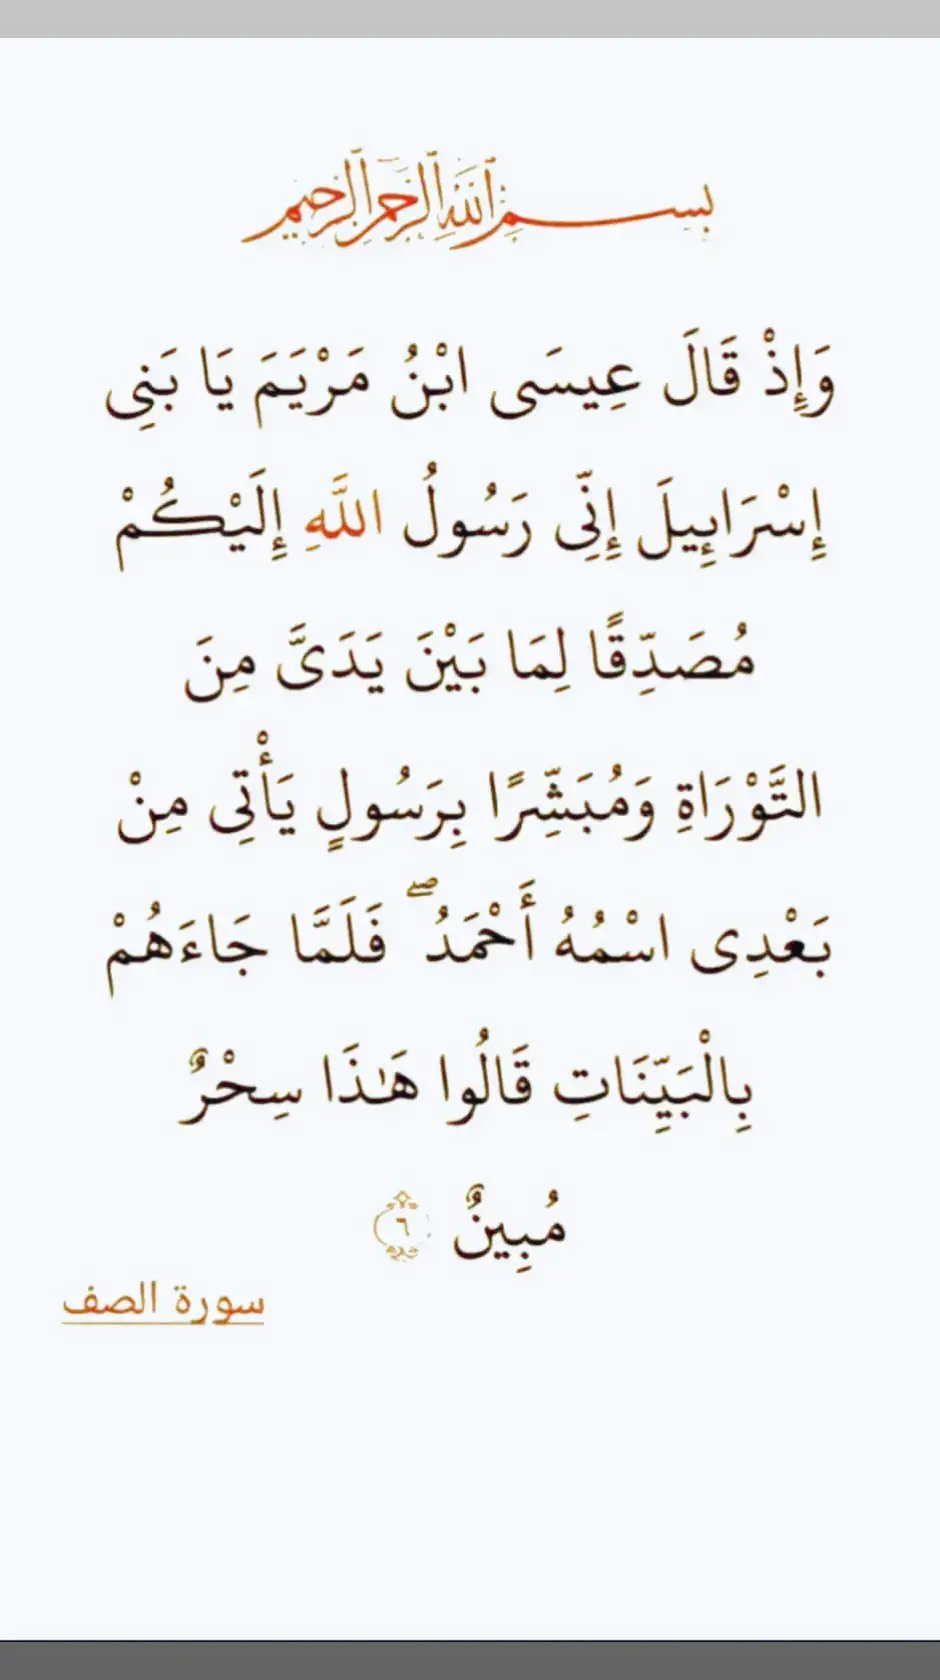 بِسْمِ اللَّهِ الرَّحْمَٰنِ الرَّحِيمِ
وَإِذْ قَالَ عِيسَى ابْنُ مَرْيَمَ يَا بَنِى
إِسْرَائِيلَ إِنِّى رَسُولُ اللَّهِ إِلَيْكُمْ
مُصَدِّقًا لِمَا بَيْنَ يَدَىَّ مِنَ
التَّوْرَاةِ وَمُبَشِّرًا بِرَسُولٍ يَأْتِى مِنْ
بَعْدِى اسْمُهُ أَحْمَدُ ۖ فَلَمَّا جَاءَهُمْ
بِالْبَيِّنَاتِ قَالُوا هَٰذَا سِحْرٌ
مُبِينٌ ٦
سورة الصف